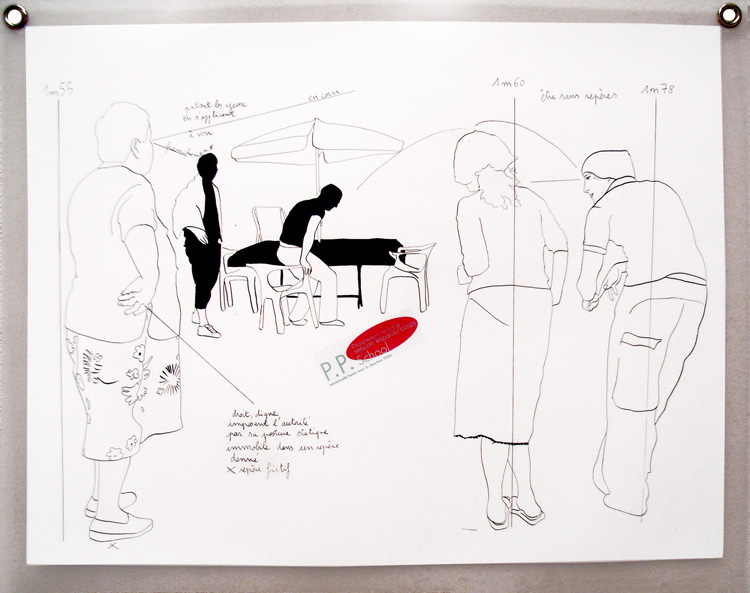 1m55
partout les yeux
en s'appliquent
à voir
en coin
1m60
être sans repères
1m78
session espace/corps
P.P. School
droit, digne,
imposant l'autorité
par sa posture statique
immobile dans un repère
donné
X repère fictif
X